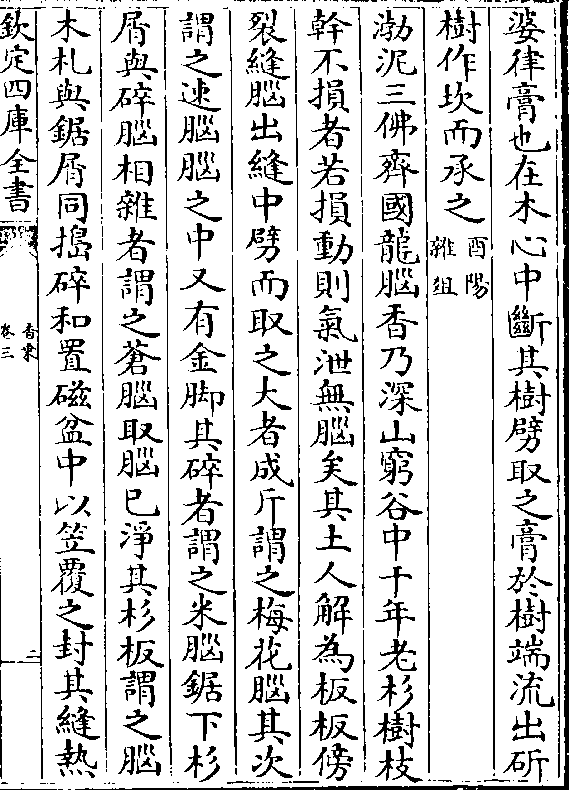 婆律膏也在木心中斷其樹劈取之膏於樹端流出斫
樹作坎而承之酉陽雜俎
渤泥三佛齊國龍腦香乃深山窮谷中千年老杉樹枝
幹不損者若損動則氣泄無腦矣其土人解為板板傍
裂縫腦出縫中劈而取之大者成斤謂之梅花腦其次
謂之速腦腦之中又有金脚其碎者謂之米腦鋸下杉
屑與碎腦相雜者謂之蒼腦取腦已淨其杉板謂之腦
木札與鋸屑同搗碎和置磁盆中以笠覆之封其縫熱
欽定四庫全書
香乗
卷三
二